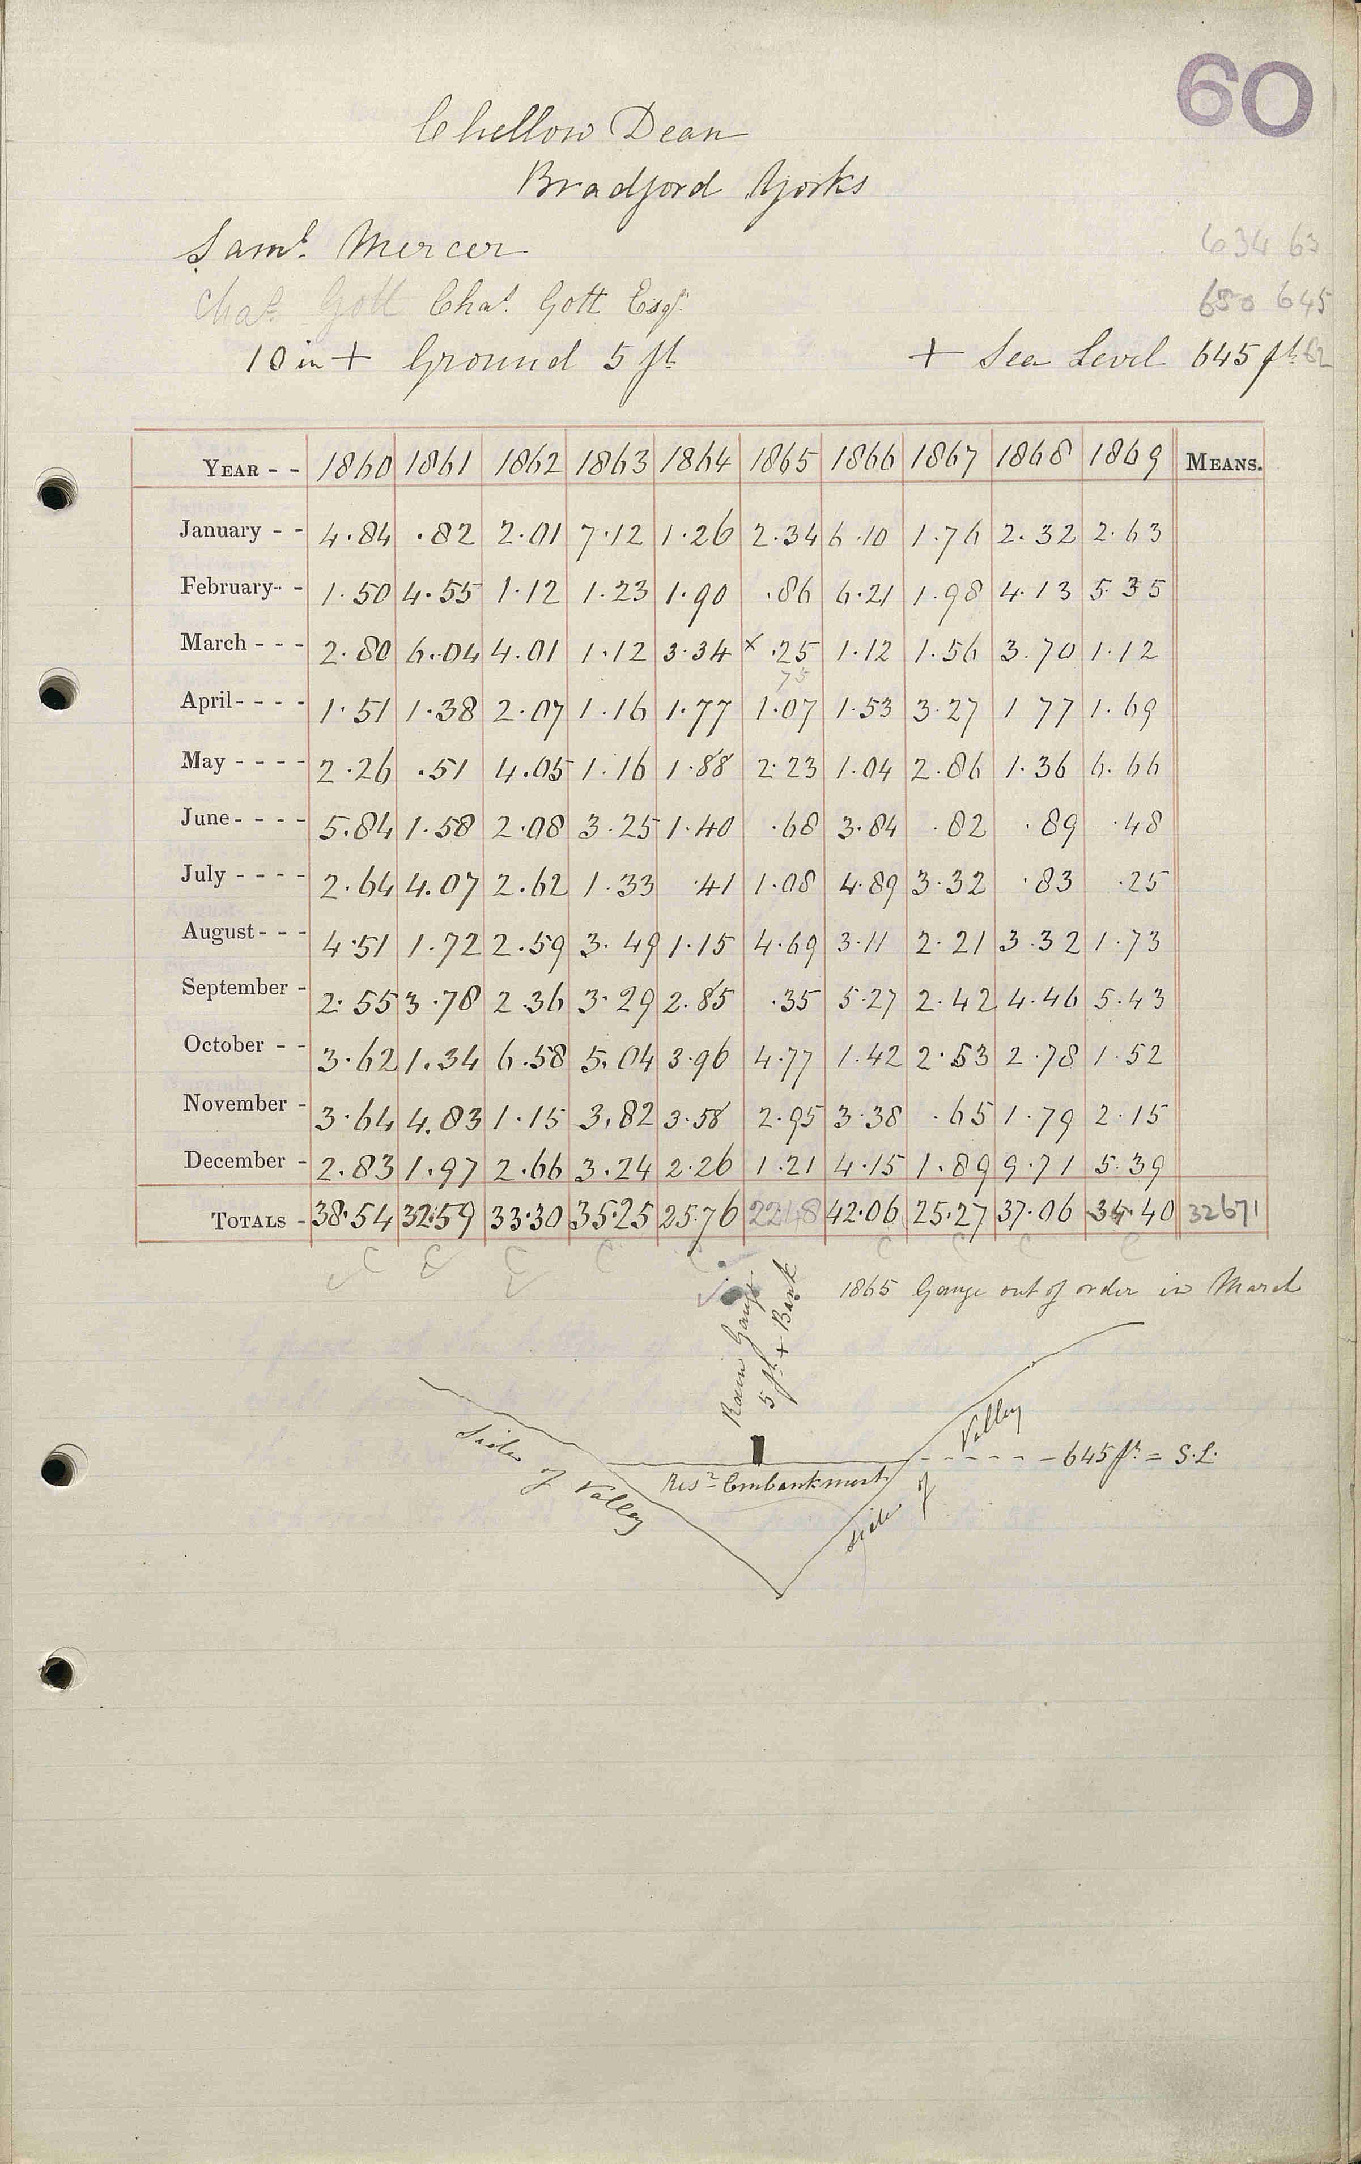 60
Chellow Dean
Bradford Yorks
Saml. Mercer
634 63
Chas. Gott Chas. Gott Esqr.
650 645
10 in + Ground 5 ft + Sea Level 645 ft.
YEAR - - 1860 1861 1862 1863 1864 1865 1866 1867 1868 1869 MEANS.
January - - 4.84 .82 2.01 7.12 1.26 2.34 6.10 1.76 2.32 2.63
February - - 1.50 4.55 1.12 1.23 1.90 .86 6.21 1.98 4.13 5.35
March - - - 2.80 6.04 4.01 1.12 3.34 x .25 1.12 1.56 3.70 1.12
75
April - - - - 1.51 1.38 2.07 1.16 1.77 1.07 1.53 3.27 1 77 1.69
May - - - - 2.26 .51 4.05 1.16 1.88 2.23 1.04 2.86 1.36 6.66
June - - - - 5.84 1.58 2.08 3.25 1.40 .68 3.84 .82 .89 .48
July - - - - 2.64 4.07 2.62 1.33 .41 1.08 4.89 3.32 .83 .25
August - - - 4.51 1.72 2.59 3.49 1.15 4.69 3.11 2.21 3.32 1.73
September - 2.55 3.78 2 36 3.29 2.85 .35 5.27 2.42 4.46 5.43
October - - 3.62 1.34 6.58 5.04 3.96 4.77 1.42 2.53 2.78 1.52
November - 3.64 4.83 1.15 3.82 3.58 2.95 3.38 .65 1.79 2.15
December - 2.83 1.97 2.66 3.24 2.26 1.21 4.15 1.89 9.71 5.39
TOTALS - 38.54 32.59 33.30 35.25 25.76 22.48 42.06 25.27 37.06 34.40 32671
C C C C C C C C C
1865 Gauge out of order in March
Rain Gauge
5 ft. + Bank
Side of Valley
Resr. Embankment
Side of Valley
645 ft. = S.L.